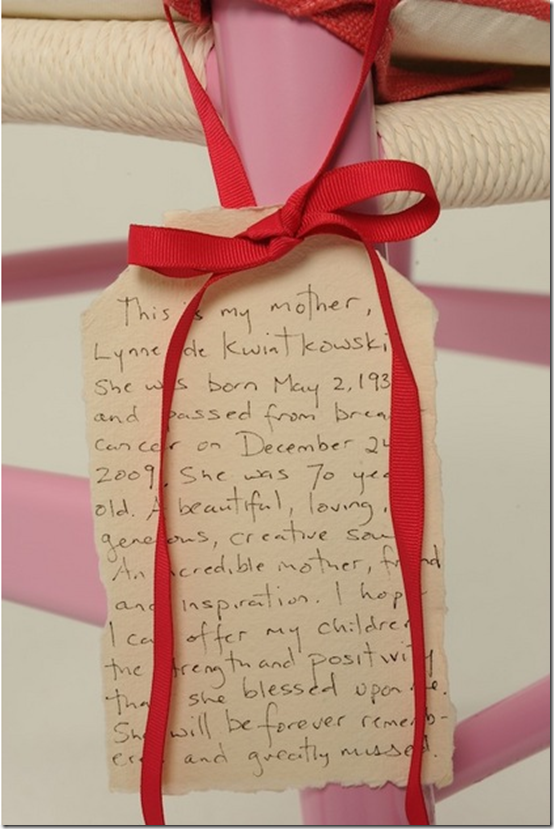 This is my mother,
Lynne de Kwiatkowski
She was born May 2, 193
and passed from brea
cancer on December 24
2009. She was 70 yea
old. A beautiful, loving,
generous, creative sou
An incredible mother, friend
and inspiration. I hope
I can offer my children
the strength and positivity
that she blessed upon me.
She will be forever rememb-
ered and greatly missed.